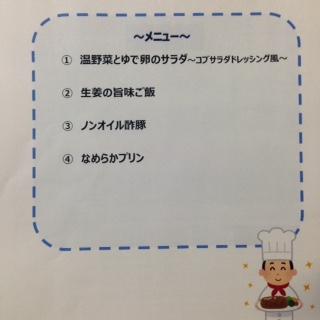 ～メニュー～
① 温野菜とゆで卵のサラダ～コブサラダドレッシング風～
② 生姜の旨味ご飯
③ ノンオイル酢豚
④ なめらかプリン